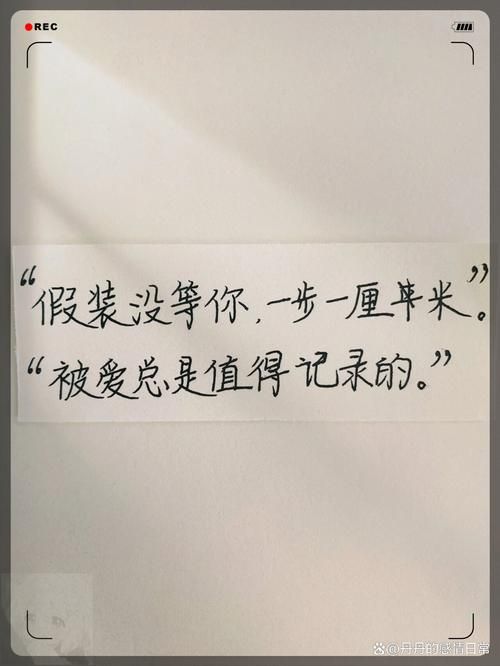 REC
“假装没等你，一步一厘米”。
“被爱总是值得记录的。”
丹丹的感情日常